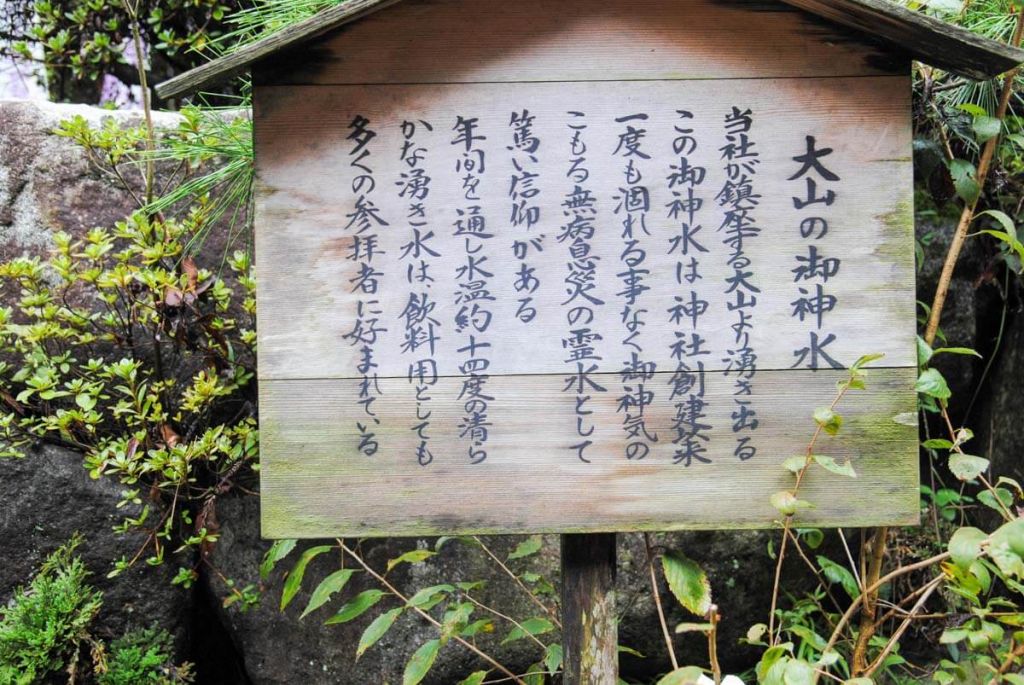 大山の御神水
当社が鎮座する大山より湧き出る
この御神水は神社創建来
一度も涸れる事なく御神気の
こもる無病息災の霊水として
篤い信仰がある
年間を通し水温約十四度の清ら
かな湧き水は、飲料用としても
多くの参拝者に好まれている